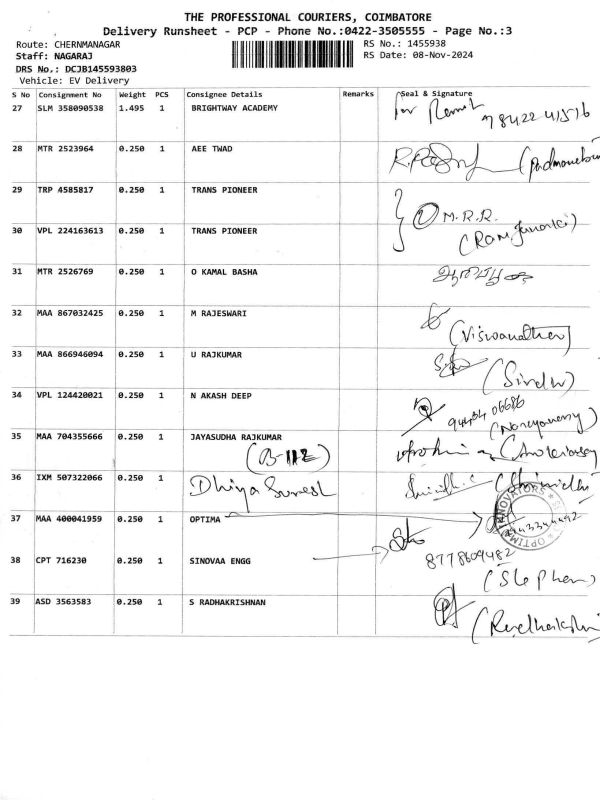 THE PROFESSIONAL COURIERS, COIMBATORE
Delivery Runsheet - PCP - Phone No.:0422-3505555 - Page No.:3
Route: CHERNMANAGAR RS No.: 1455938
Staff: NAGARAJ RS Date: 08-Nov-2024
DRS No.: DCJB145593803
Vehicle: EV Delivery
S No Consignment No Weight PCS Consignee Details Remarks Seal & Signature
27 SLM 358090538 1.495 1 BRIGHTWAY ACADEMY for
28 MTR 2523964 0.250 1 AEE TWAD
29 TRP 4585817 0.250 1 TRANS PIONEER M.R.R.
30 VPL 224163613 0.250 1 TRANS PIONEER
31 MTR 2526769 0.250 1 O KAMAL BASHA
32 MAA 867032425 0.250 1 M RAJESWARI
(Viswanathan)
33 MAA 866946094 0.250 1 U RAJKUMAR
(Sindhu)
34 VPL 124420021 0.250 1 N AKASH DEEP
35 MAA 704355666 0.250 1 JAYASUDHA RAJKUMAR
36 IXM 507322066 0.250 1 Dhiya Suresh
37 MAA 400041959 0.250 1 OPTIMA
38 CPT 716230 0.250 1 SINOVAA ENGG 8778609482
(Stephen)
39 ASD 3563583 0.250 1 S RADHAKRISHNAN